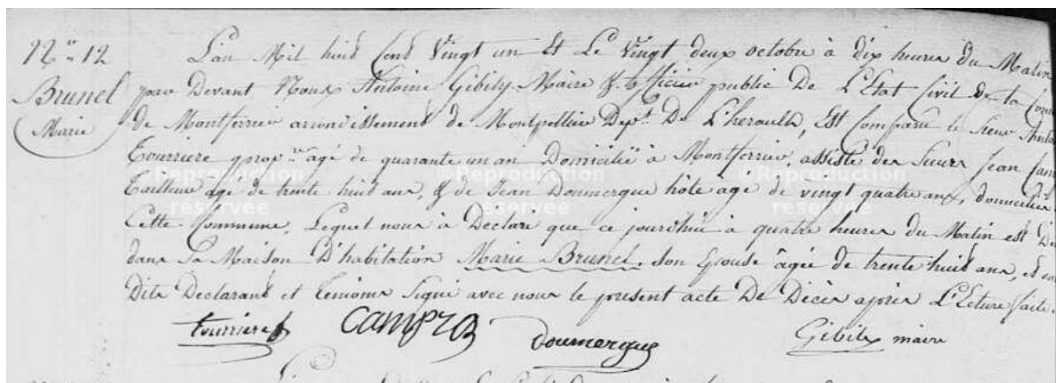 N.o 12
Brunel
Marie
L'an Mil huit Cent Vingt un Et Le Vingt deux octobre à dix heures du Matin
par Devant Nous Antoine Gibily Maire & officier public De L'Etat Civil de la
de Montferrier arrondissement de Montpellier Dept. De L'herault, Est Comparu le Sieur
Tourriere propre. agé de quarante un an Domicilié à Montferrier, assisté des Sieurs Jean
Tailleur agé de trente huit ans, & de Jean Doumergue hôte agé de vingt quatre ans, domiciliés
Cette Commune, Lequel nous à Déclaré que ce jourd'hui à quatre heures du Matin est
dans sa Maison D'habitation Marie Brunel, son Epouse âgée de trente huit ans, et ont
Dits Declarant et temoins Signé avec nous le present acte De Décès après L'Ecture faite.
Tourriere Campra Doumergue Gibily maire
©Reproduction réservée
©Reproduction réservée
©Reproduction réservée